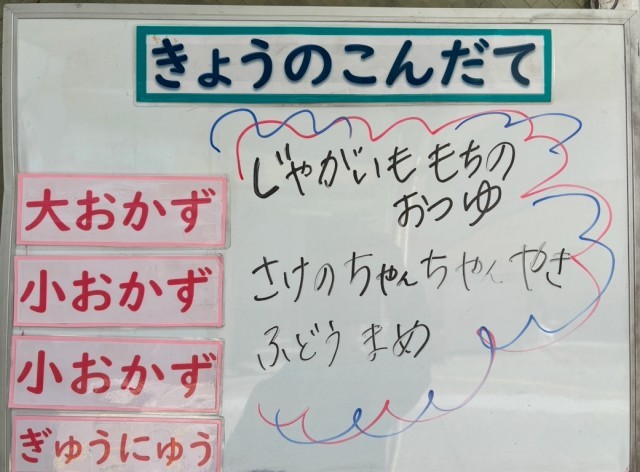 きょうのこんだて
大おかず
じゃがいももちの
おつゆ
小おかず
さけのちゃんちゃんやき
小おかず
ふどうまめ
ぎゅうにゅう